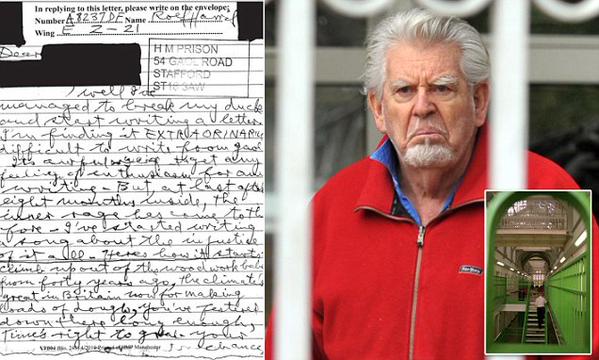 In replying to this letter, please write on the envelope:
Number A8237DE Name Rolf Harris
Wing E 2-21
H M PRISON
54 GAOL ROAD
STAFFORD
ST16 3AW
Dear
Well I've
managed to break my duck
and start writing a letter.
I'm finding it EXTRAORDINARILY
difficult to write from gaol
It's awful trying to get any
feeling of enthusiasm for any
writing - But, at last after
eight months inside, the
inner rage has come to the
fore - I've started writing
a song about the injustice
of it all - Heres how it starts:
Climb up out of the woodwork babe
from forty years ago, the climate's
great in Britain now for making
loads of dough, you've festered
down there long enough,
time's right to grab your
chance